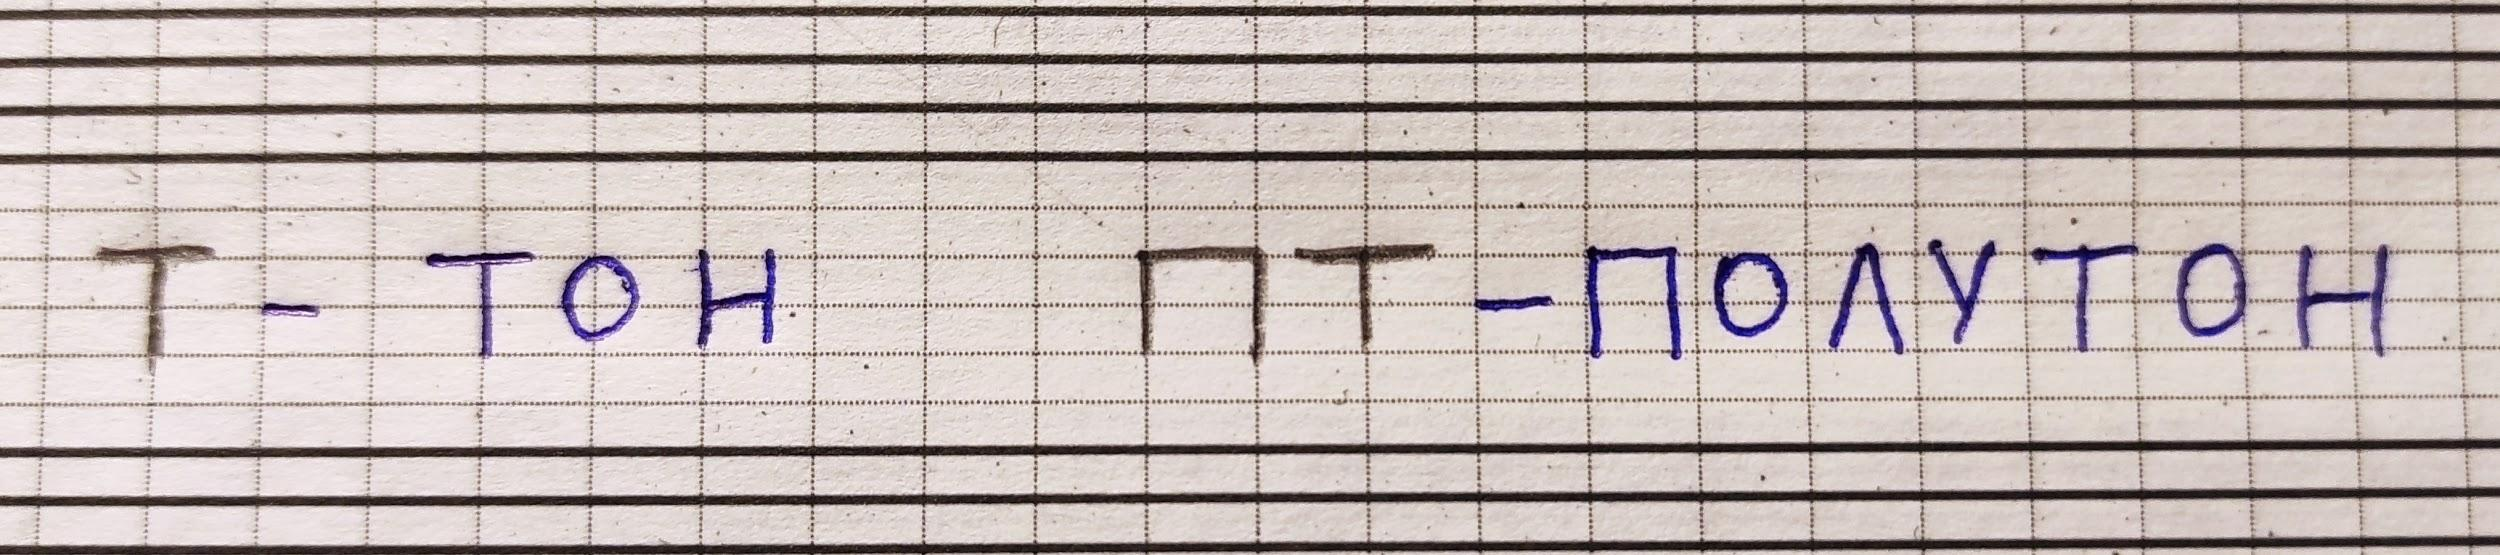 Т - ТОН ПТ - ПОЛУТОН